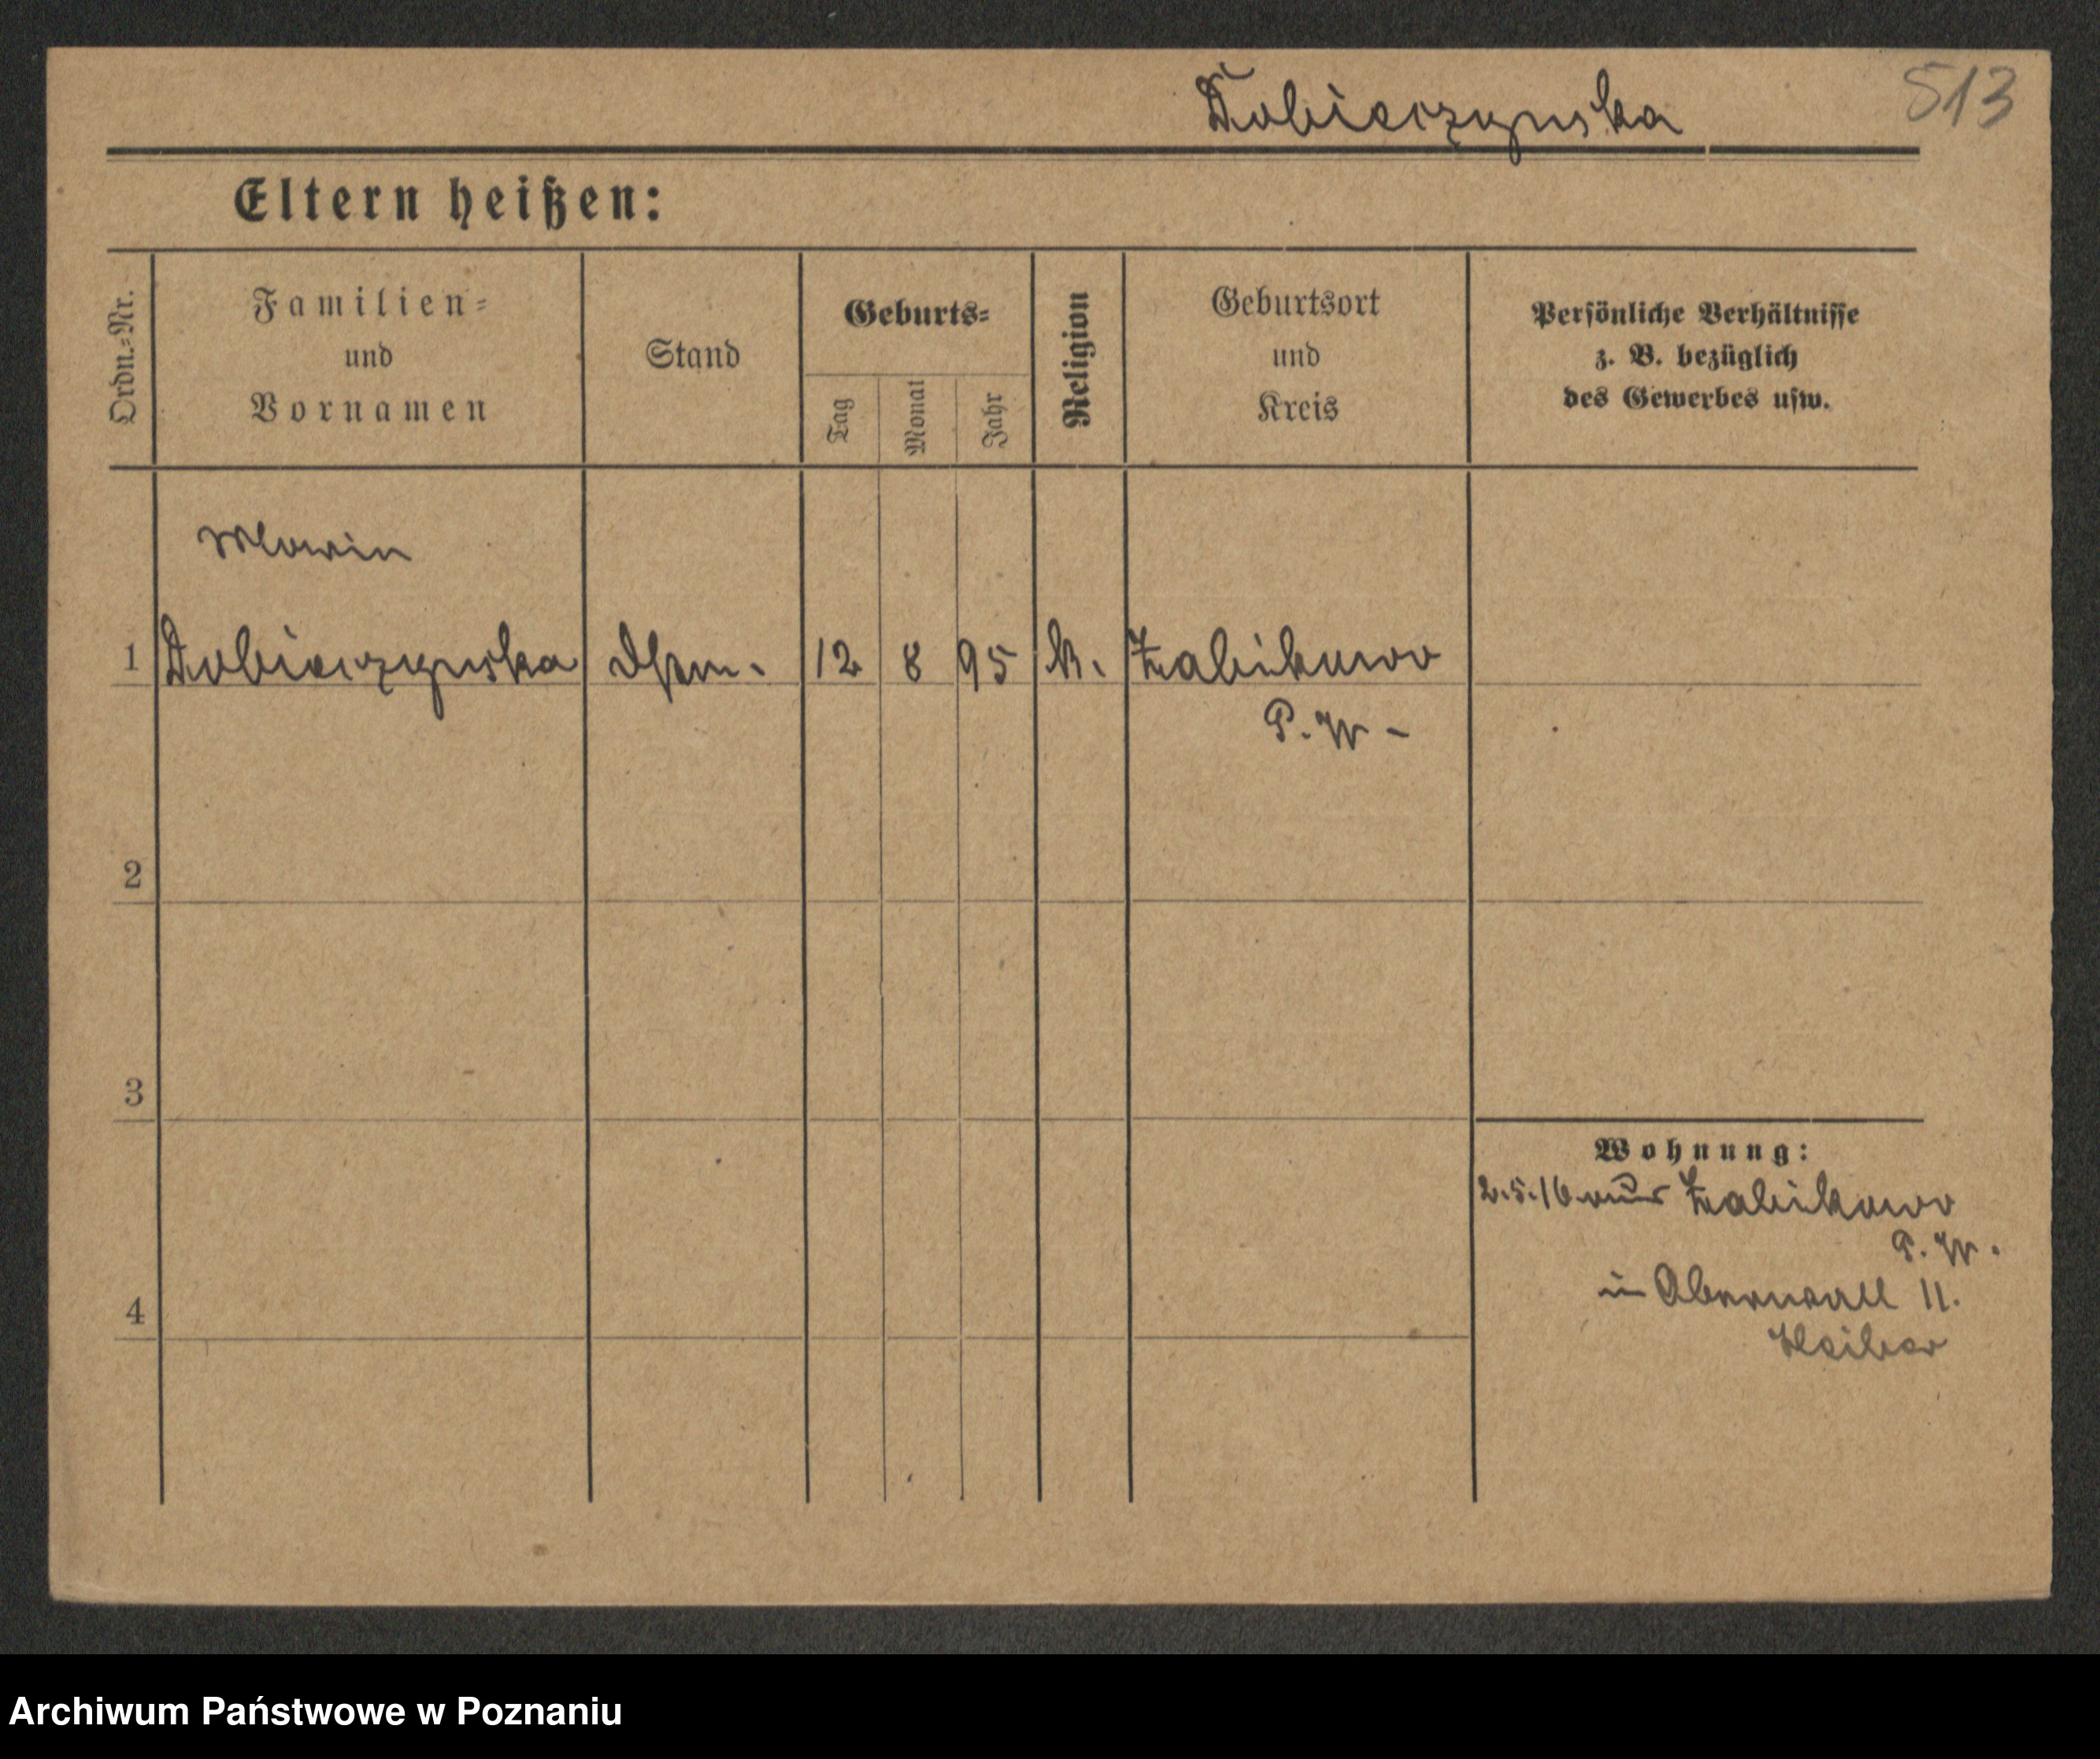 Dobierzynska
513
Eltern heißen:
Ordn.-Nr.
Familien-
und
Vornamen
Stand
Geburts-
Tag
Monat
Jahr
Religion
Geburtsort
und
Kreis
Persönliche Verhältnisse
z. B. bezüglich
des Gewerbes usw.
1
12
8
95
k.
Zabikowo
P. W.
2
3
4
Wohnung:
2.5.16 aus Zabikowo
P. W.
in Oberwall 11.
Archiwum Państwowe w Poznaniu